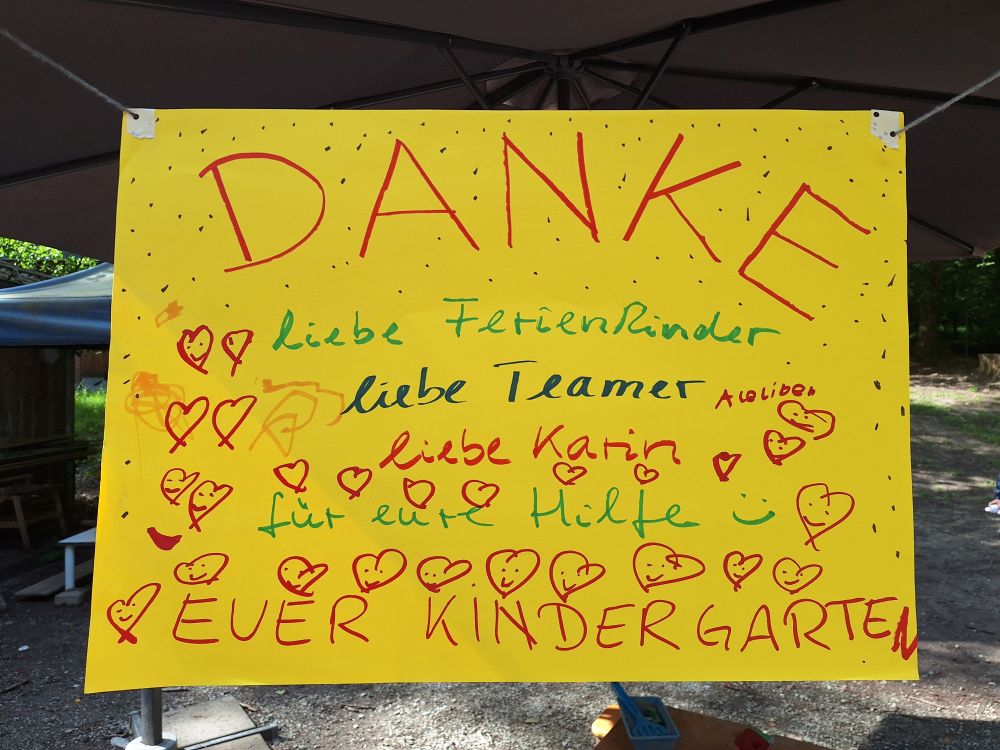 DANKE
liebe Ferienkinder
liebe Teamer
liebe Karin
für eure Hilfe :)
EUER KINDERGARTEN